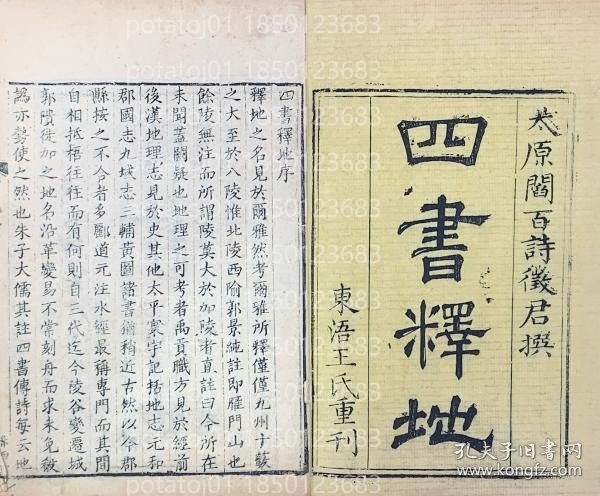 太原閻百詩徵君撰
四書釋地
東浯王氏重刊
四書釋地序
釋地之名見於爾雅然考爾雅所釋僅僅九州十藪
之大至於八陵惟北陵西隃郭景純註即雁門山也
餘陵無注而所謂陵莫大於加陵者直註曰今所在
未聞蓋闕疑也地理之可考者禹貢職方見於經前
後漢地理志見於史其他太平寰宇記括地志元和
郡國志九域志三輔黃圖諸書猶稍近古然以今郡
縣按之不合者多酈道元注水經最稱專門而其間
自相抵牾往往而有何則自三代迄今陵谷變遷城
郭隳徙加之地名沿革變易不常刻舟而求未免疑
譌亦勢使之然也朱子大儒其註四書傳詩每云地
potatoj01 1850123683
potatoj01 1850123683
potatoj01 1850123683
potatoj01 1850123683
孔夫子旧书网
www.kongfz.com